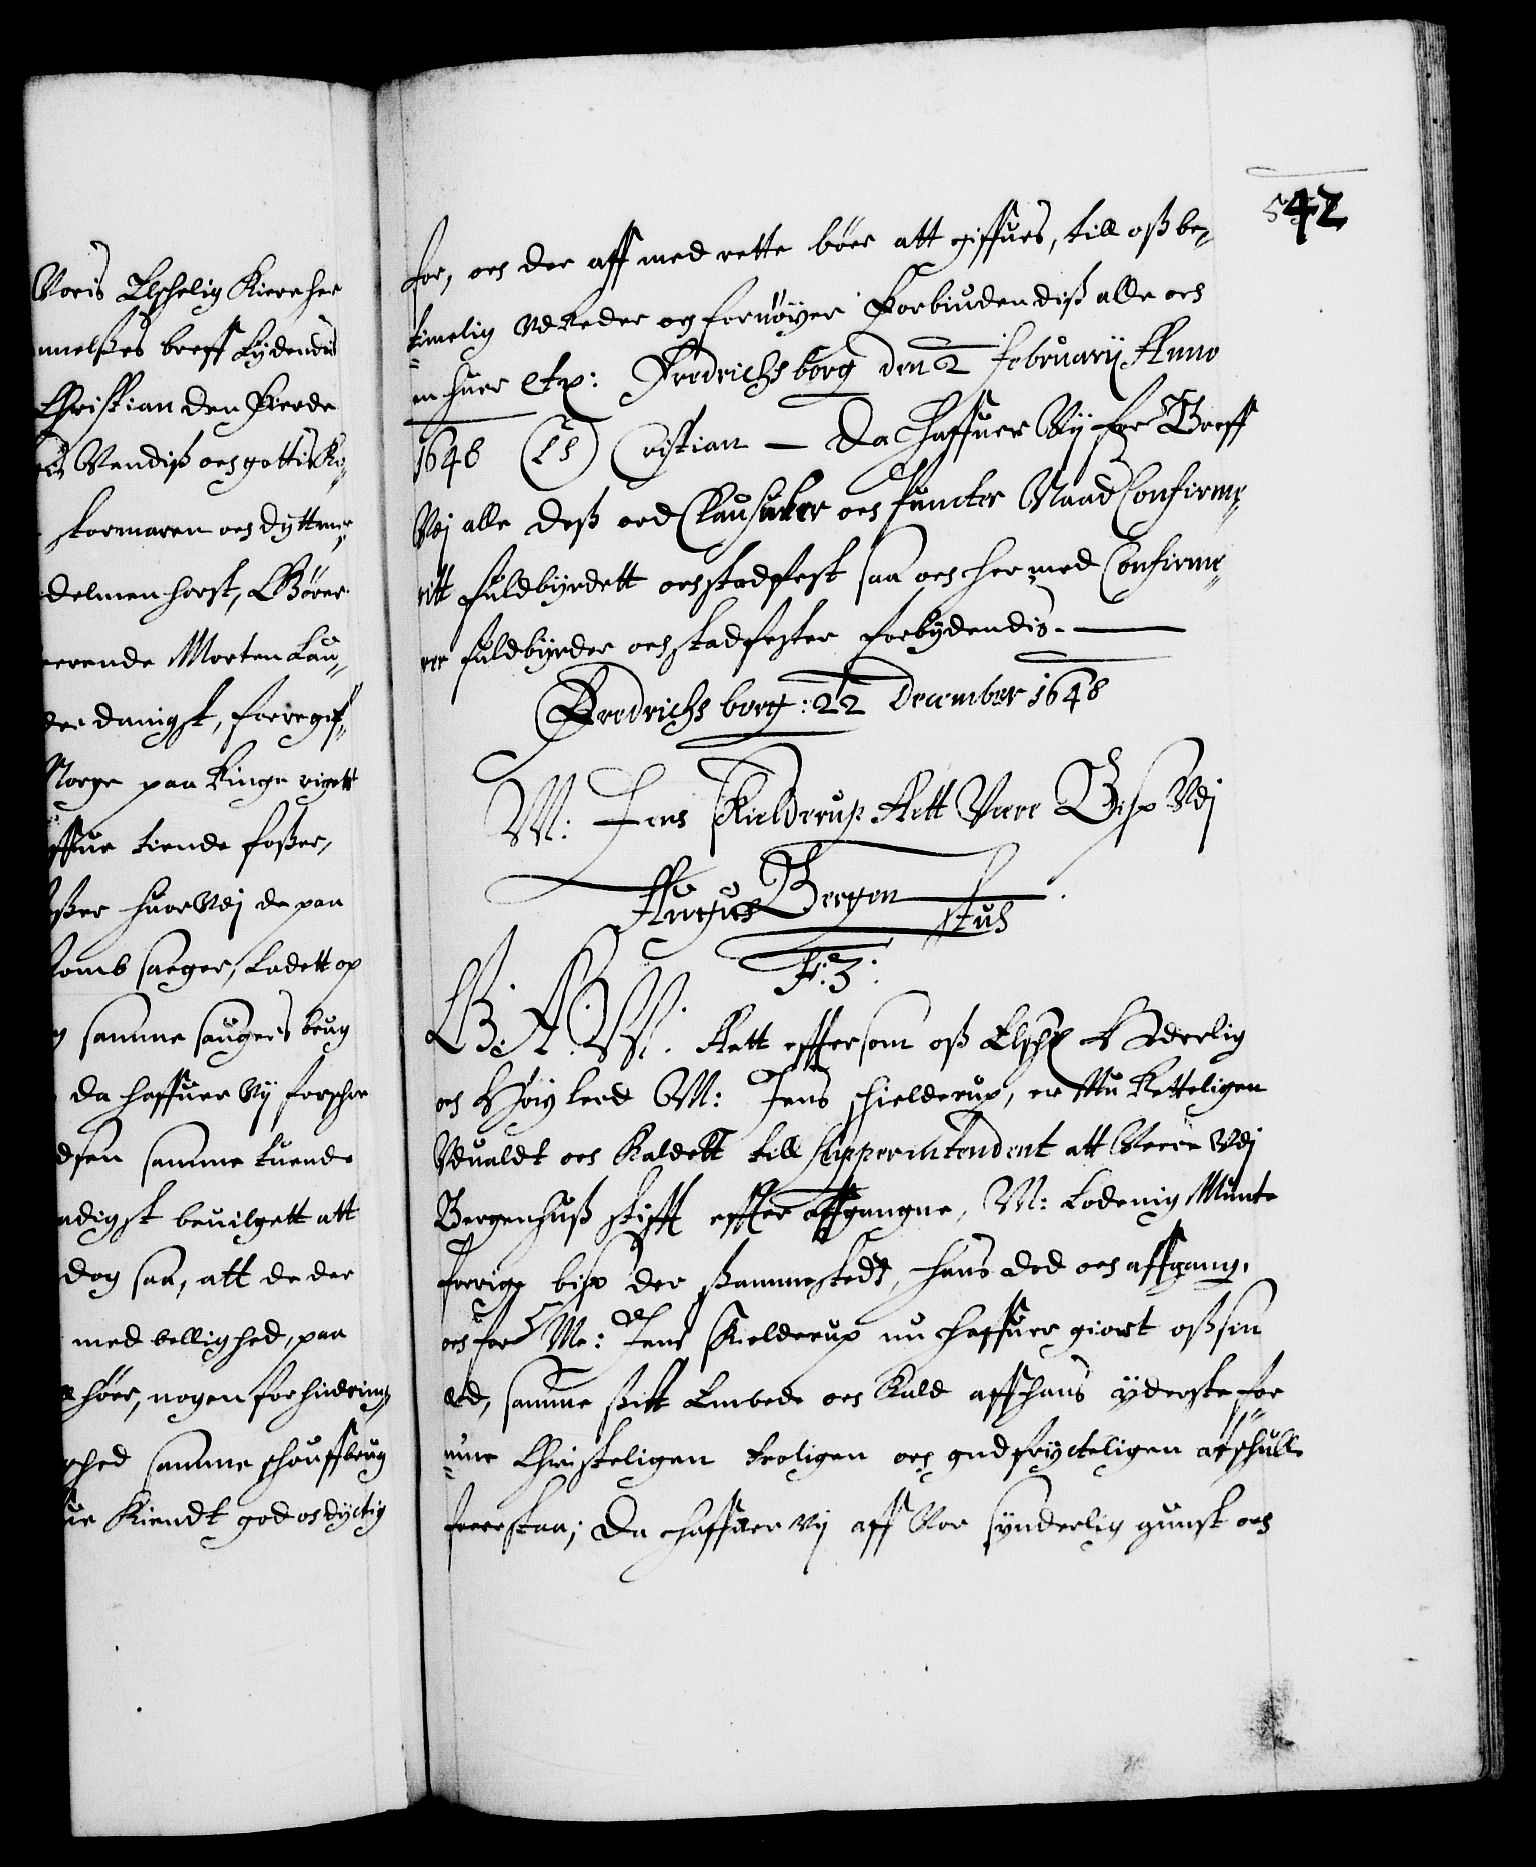 Voris Elschelig Kiere her
melßes breff Lydendis
Christian den Fierde
Vendiß och gottis Ko¬
stormaren och dyttmer¬
delmenhorst, Görer
erende Morten Lau¬
der danigst, foregif¬
Norge paa Ringe riget
ffue tiende foßer,
ßer huor Vdj de paa
somb sauger, ladett op
samme saugeris brug
da haffuer Vy forschre
dsen samme tuende
adigst beuilgett att
dog saa, att de der
med bellighed, paa
höer, nogen forhindring
ghed samme schouffbrug
ue Kiendt god och dyctig
542
for, och der aff med rette bör att giffues, till oß be¬
timelig Vdreder og fornöyer Forbiudendiß alle och
en huer etx: Fredrichsborg den 2 Februarij Anno
1648 (LS) Cristian — Da Haffuer Vy for Breff
Vdj alle deß ord Clausuler och Puncter Naad Confirme¬
ritt fuldbyrdett och stadfest saa och her med Confirme¬
rer fuldbyrder och stadfester forbydendis. —
Fredrichsborg: 22 December 1648
M: Jens Skielderup Aett Vere Bisp Vdj
Bergen
F: 3:
G. A. W. Aett effter som oß Elschl Hederlig
och Höylerd M: Jens Schielderup, er Nu Retteligen
Vdualdt och Kaldett till Supperintendent att Veere Vdj
Bergenhuß stifft effter affgangne, M: Lodvig Munte
forrige bisp der sammestedt, hans död och affgang,
och for Me: Jens Skielderup nu haffuer giort oß sin
Ed, samme stift Embede och Kald aff hans yderste for
mue Christeligen troligen och gudfrycteligen at schulle
forestaa; Da haffuer Vij aff Vor synderlig gunst och